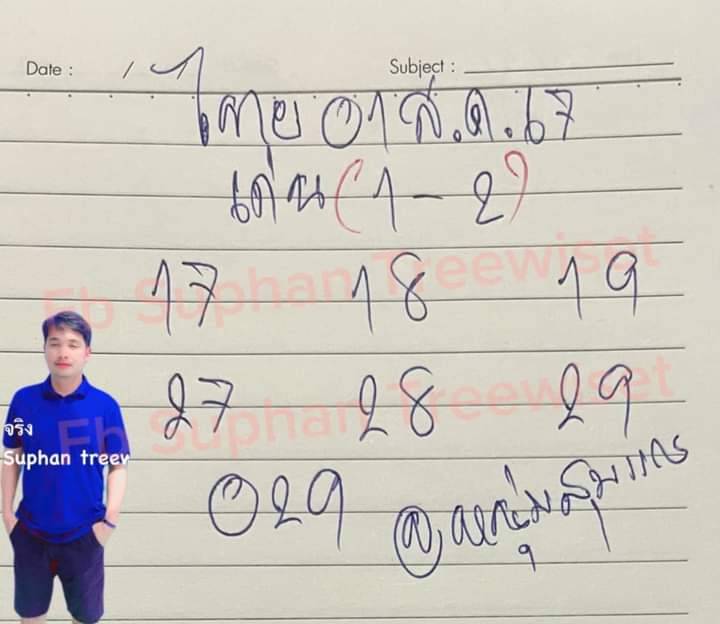 Date : / /
Subject :
ไทย 01 ส.ค. 67
เด่น (1-2)
17 18 19
27 28 29
029
Fb Suphan Treewiset
Fb Suphan Treewiset
จริง
Suphan treev